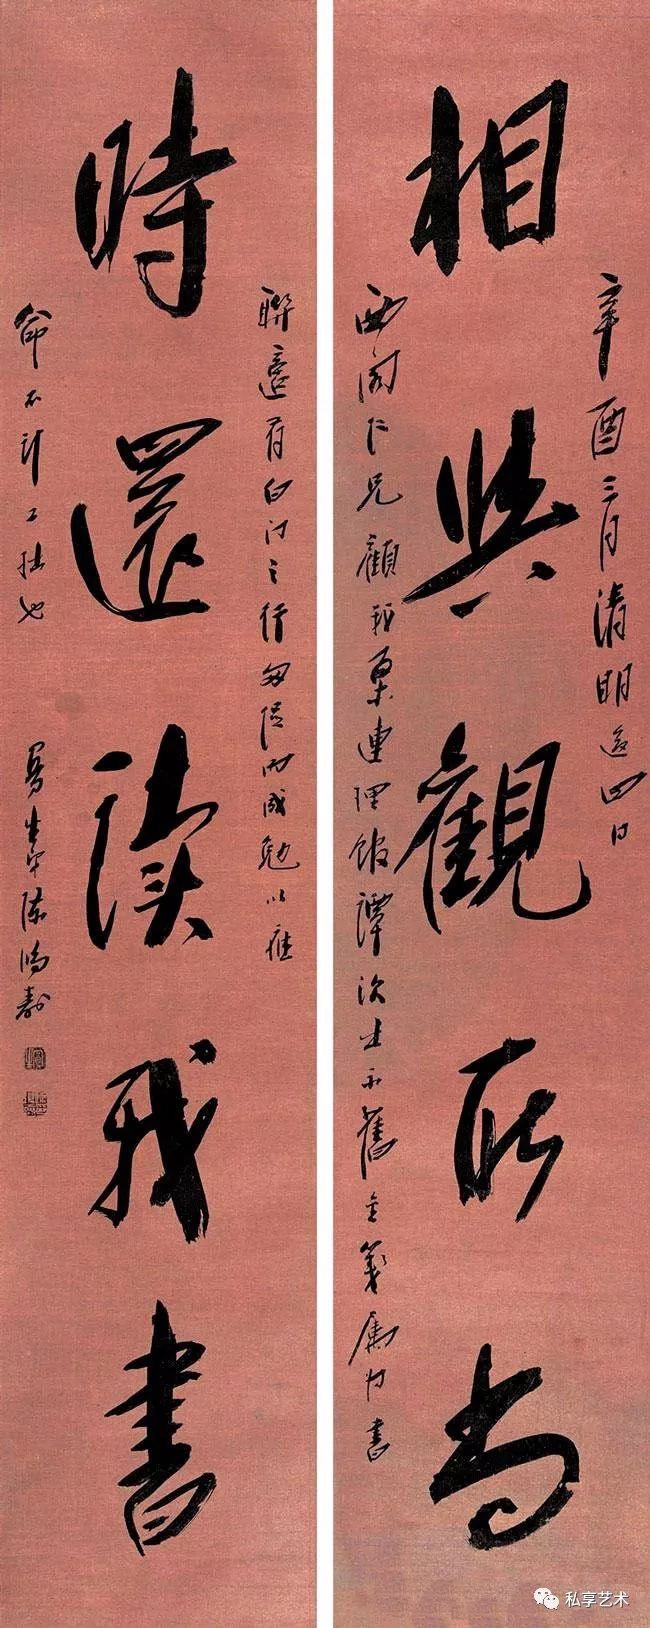 辛酉三月清明後四日
相與觀所尚
西仁兄顧我桑連理館譚次出示舊金箋屬為書
聯適有白門之行匆成勉以應
時還讀我書
命不計工拙也 曼生弟陳鴻壽
私享艺术